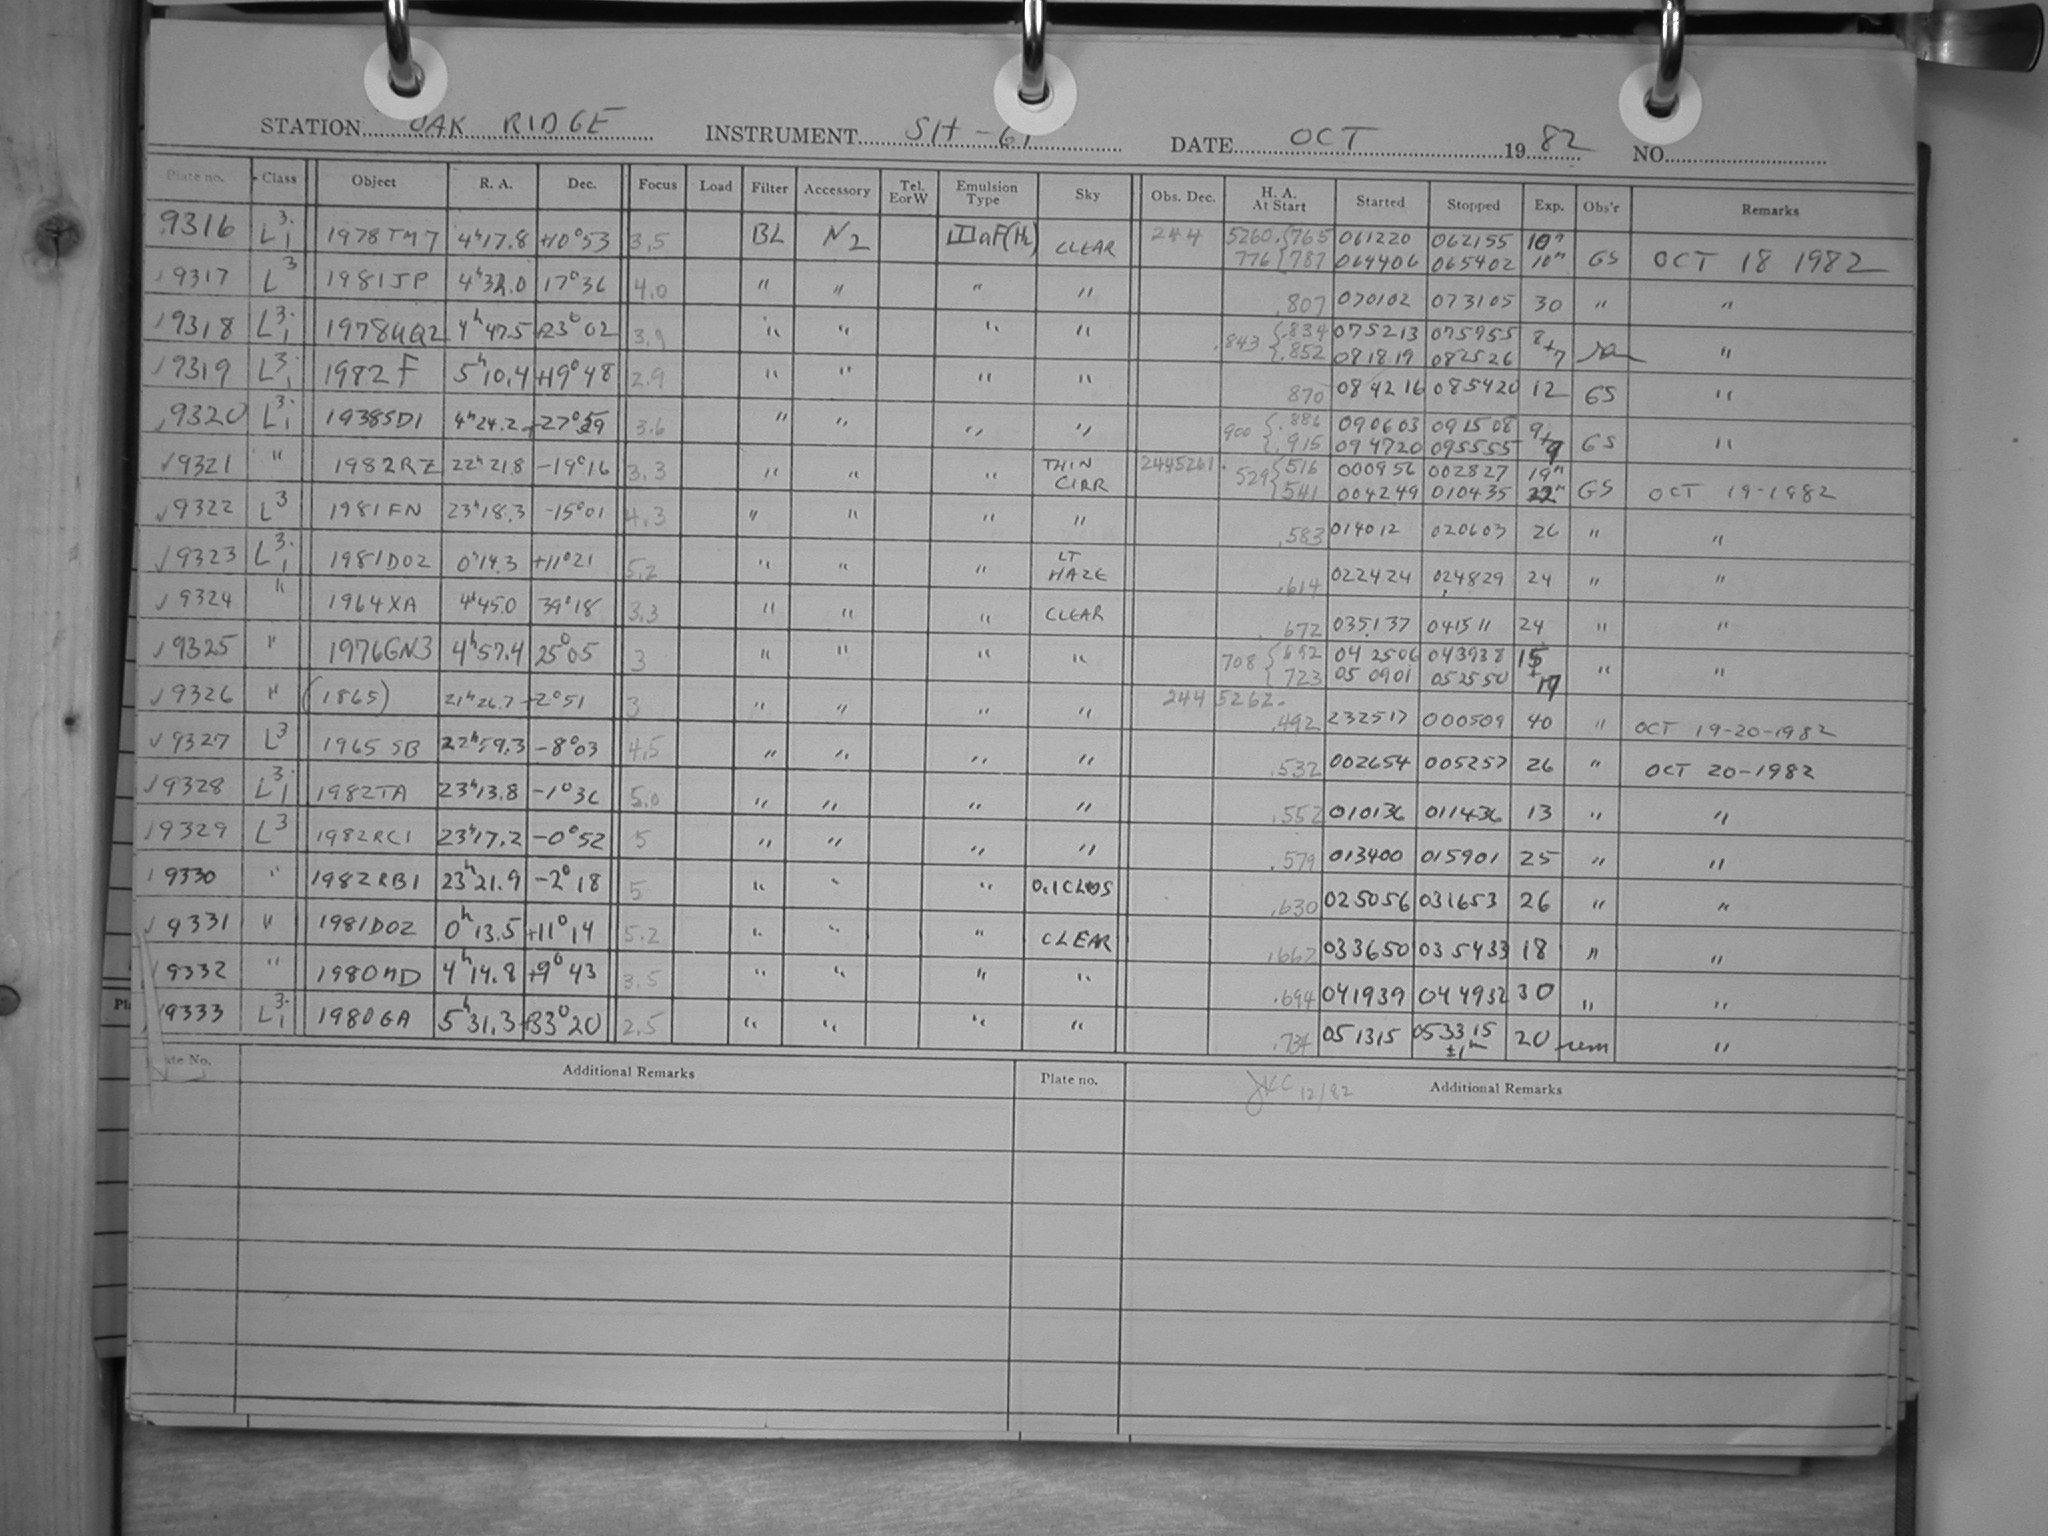 STATION OAK RIDGE INSTRUMENT SH-61 DATE OCT 19 82 NO.
Plate no. Class Object R. A. Dec. Focus Load Filter Accessory Tel. EorW Emulsion Type Sky Obs. Dec. H. A. At Start Started Stopped Exp. Obs'r Remarks
9316 L 3. 1 1978TM7 4h17.8 +10°53 3.5 BL N2 IIIaF(H2) CLEAR 244 5260. {765 061220 062155 10m
776 {787 064406 065402 10m GS OCT 18 1982
√9317 L3 1981JP 4h32.0 17°36 4.0 " " " " .807 070102 073105 30 " "
√9318 L 3. 1 1978UQ2 4h47.5 +23°02 3.9 " " " " .843 {.834 075213 075955 8+7 "
{.852 081819 082526
√9319 L 3. 1 1982 F 5h10.4 +19°48 2.9 " " " " 870 084216 085420 12 GS "
√9320 L 3. 1 1938SD1 4h24.2 +27°59 3.6 " " " " 900 {.886 090603 091508 9+9 GS "
{.915 094720 095555
√9321 " 1982RZ 22h21.8 -19°16 3.3 " " " THIN CIRR 2445261. 529 {516 000956 002827 19m
{541 004249 010435 22m GS OCT 19-1982
√9322 L3 1981FN 23h18.3 -15°01 4.3 " " " " .583 014012 020603 26 " "
√9323 L 3. 1 1981DOZ 0h14.3 +11°21 5.2 " " " LT HAZE .614 022424 024829 24 " "
√9324 " 1964XA 4h45.0 39°18 3.3 " " " CLEAR .672 035137 041511 24 " "
√9325 " 1976GN3 4h57.4 25°05 3 " " " " 708 {692 042506 043938 15+17 " "
{723 050901 052550
√9326 " (1865) 21h26.7 +2°51 3 " " " " 244 5262. .492 232517 000509 40 " OCT 19-20-1982
√9327 L3 1965 SB 22h59.3 -8°03 4.5 " " " " .532 002654 005257 26 " OCT 20-1982
√9328 L 3. 1 1982TA 23h13.8 -1°36 5.0 " " " " .552 010136 011436 13 " "
√9329 L3 1982RC1 23h17.2 -0°52 5 " " " " .579 013400 015901 25 " "
√9330 " 1982RB1 23h21.9 -2°18 5 " " " 0.1CLDS .630 025056 031653 26 " "
√9331 " 1981DOZ 0h13.5 +11°14 5.2 " " " CLEAR .662 033650 035433 18 " "
√9332 " 4h14.8 +9°43 3.5 " " " " .694 041939 044932 30 " "
√9333 L 3. 1 1980GA 5h31.3 +33°20 2.5 " " " " .734 051315 053315 ±1m 20 "
Plate No. Additional Remarks Plate no. JKC 12/82 Additional Remarks